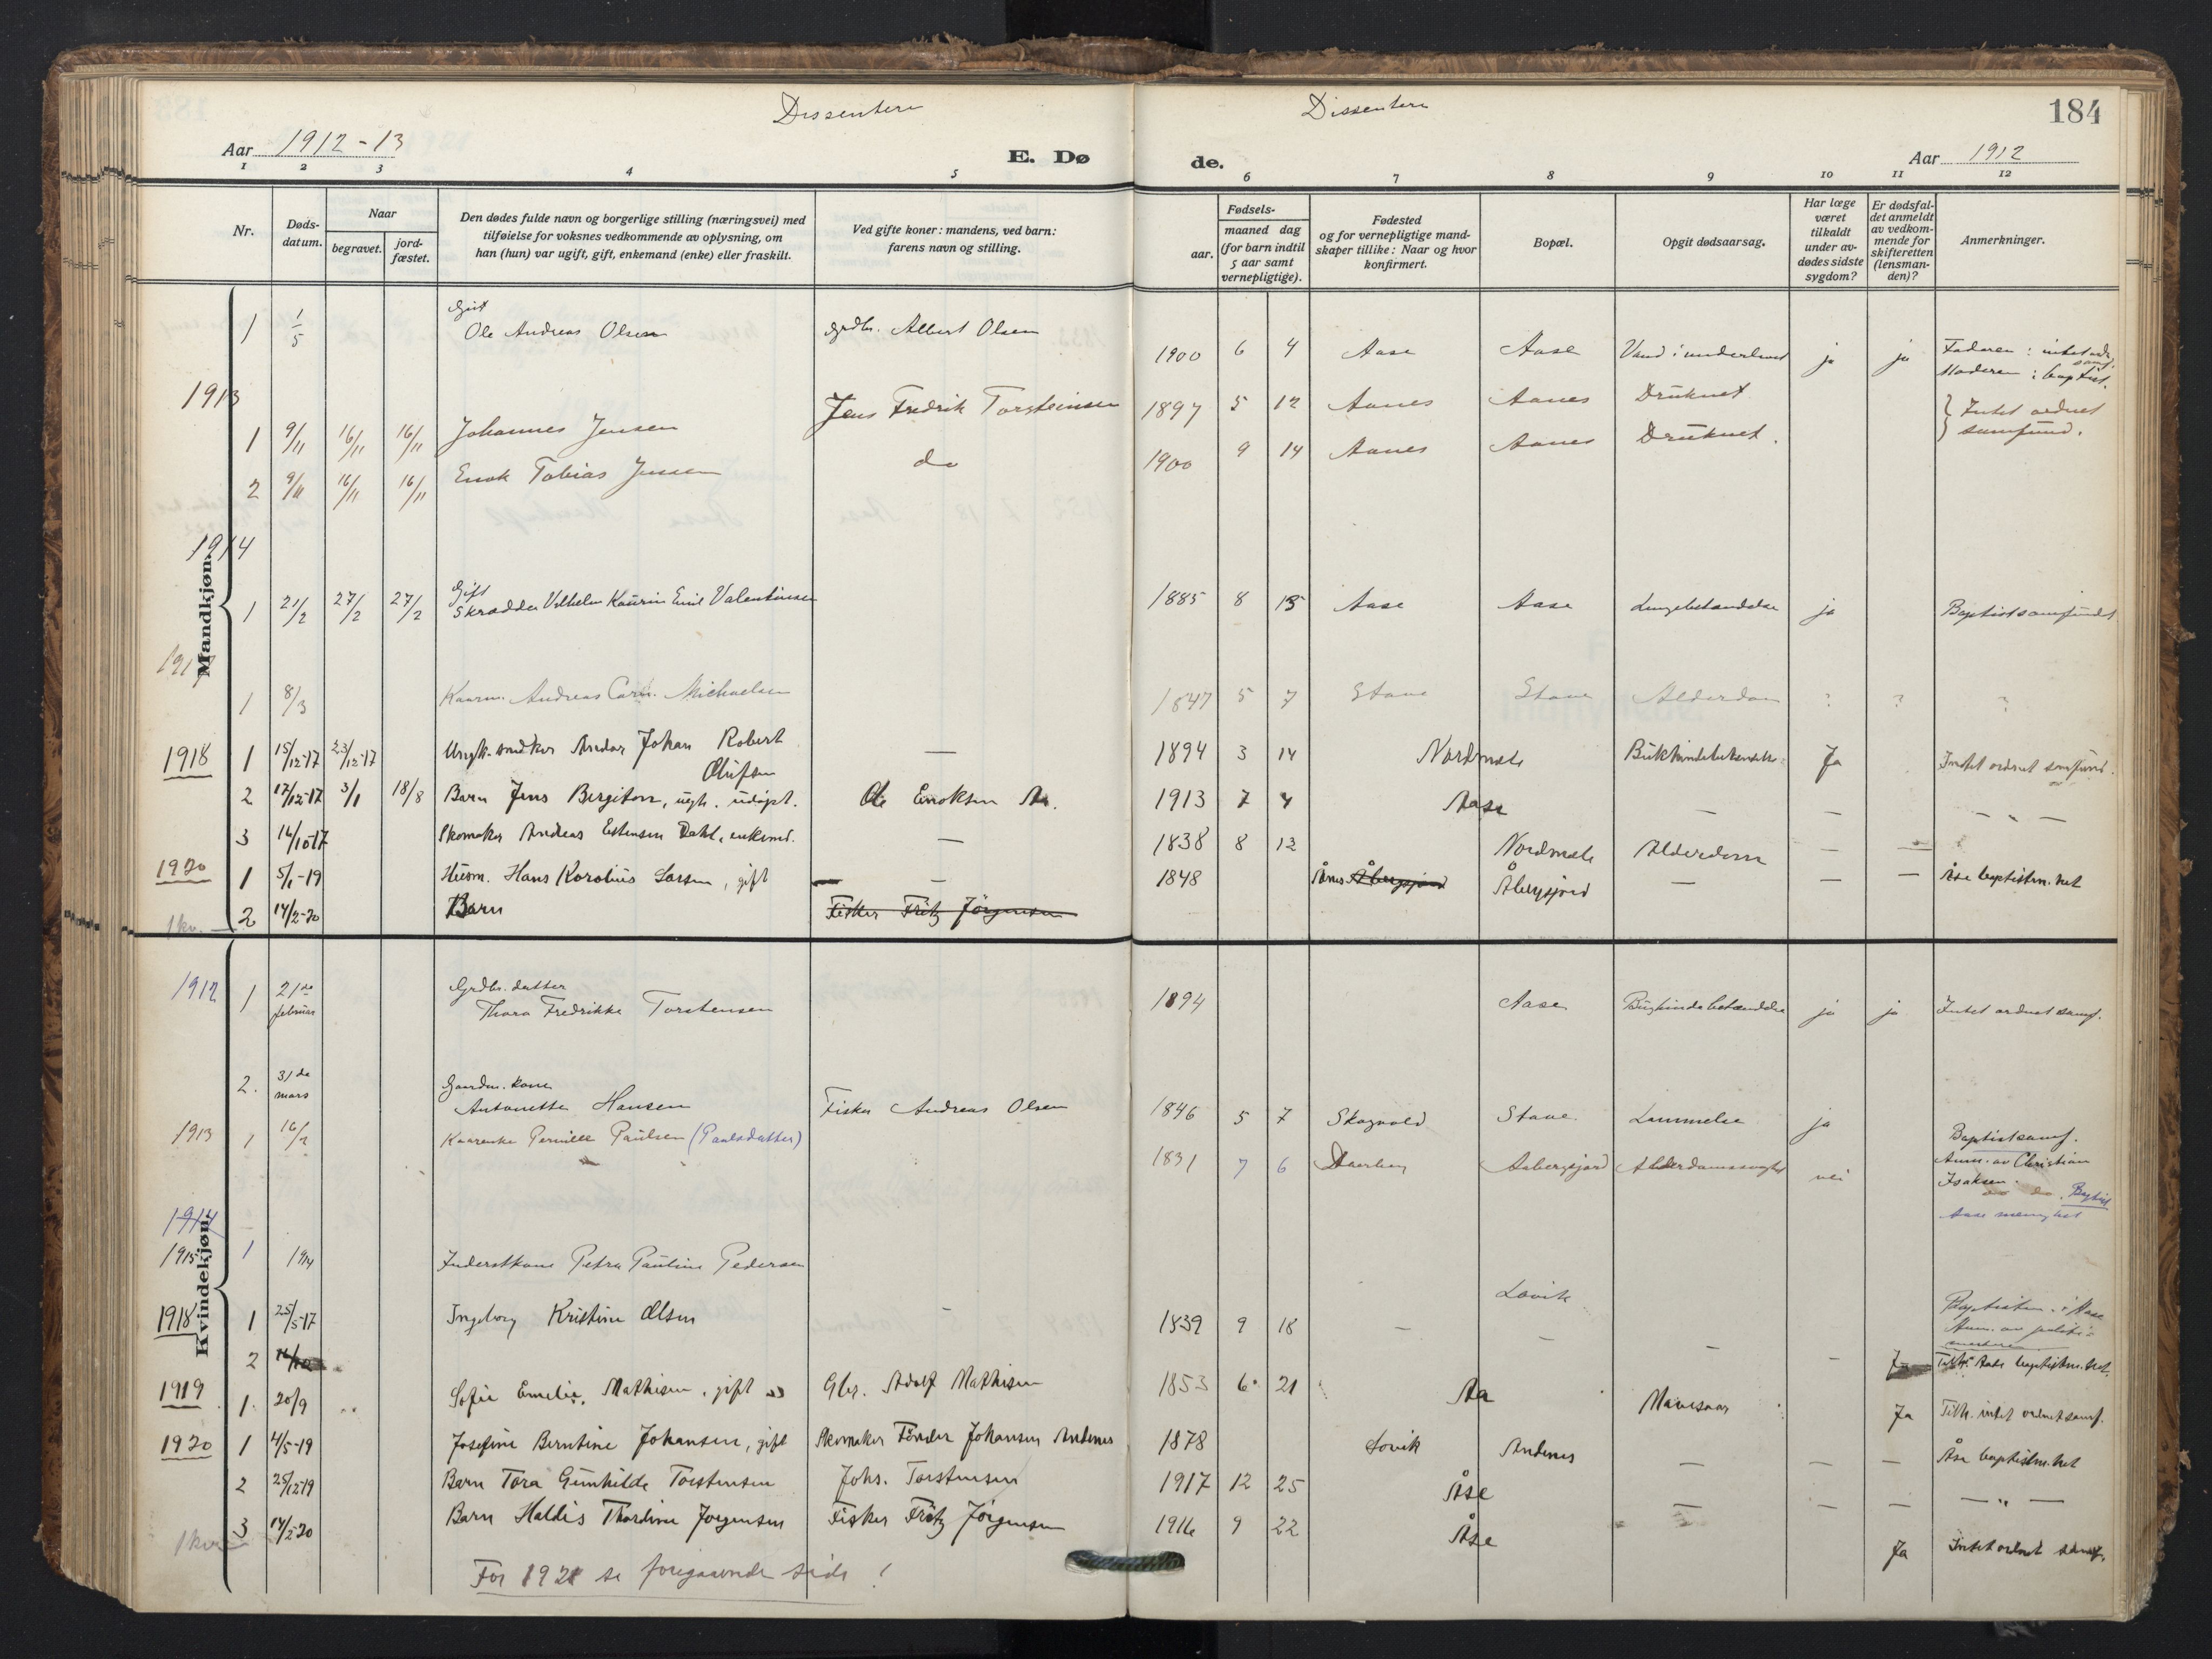 Dissentere
Dissentere
184
Aar 1912-13
E. Dø
de.
Aar 1912
1 2 3 4 5 6 7 8 9 10 11 12
Nr.
Døds-
datum.
Naar
begravet.
jord-
fæstet.
Den dødes fulde navn og borgerlige stilling (næringsvei) med
tilføielse for voksnes vedkommende av oplysning, om
han (hun) var ugift, gift, enkemand (enke) eller fraskilt.
Ved gifte koner: mandens, ved barn:
farens navn og stilling.
Fødsels-
aar.
maaned dag
(for barn indtil
5 aar samt
vernepligtige).
Fødested
og for vernepligtige mand-
skaper tillike: Naar og hvor
konfirmert.
Bopæl.
Opgit dødsaarsag.
Har læge
været
tilkaldt
under av-
dødes sidste
sygdom?
Er dødsfal-
det anmeldt
av vedkom-
mende for
skifteretten
(lensman-
den)?
Anmerkninger.
Mandkjøn.
1 1/5 Ole Andreas Olsen Grdbr. Albert Olsen 1900 6 4 Aase Aase Vand i underlivet ja ja Faderen: intet ordn. samf.
Moderen: baptist.
1913
1 9/11 16/11 16/11 Johannes Jensen Jens Fredrik Torsteinsen 1897 5 12 Aanes Aanes Druknet } Intet ordnet
2 9/11 16/11 16/11 Enok Tobias Jensen do 1900 9 14 Aanes Aanes Druknet. } samfund.
1914
1 21/2 27/2 27/2 Gift
Skrædder Vilhelm Kaurin Emil Valentinsen 1885 8 15 Aase Aase Lungebetændelse ja Baptistsamfundet
1917
1 8/3 Kaarm. Andreas Michaelsen 1847 5 7 Stave Stave Alderdom ? ? ?
1918 1 15/12-17 23/12-17 Johan Robert
Olufsen — 1894 3 14 Nordmela Bukhindebetændelse Ja Intet ordnet samfund.
2 17/12-17 3/1 18/8 Barn Jens Bergiton, ugte. udøpt. Ole Enoksen Aa. 1913 7 4 Aase — — — " —
3 16/10-17 Skomaker Andreas Estensen Dahl, enkemd. — 1838 8 12 Nordmela Alderdom — —
1920 1 5/1-19 Husm. Hans Karolius Larsen, gift — 1848 Årnes Åbergsjord Åbergsjord — — — Åse baptistm.het
1kv. — 2 14/2-20 Barn Fisker Fritz Jörgensen
Kvindekjøn.
1912 1 21de
februar Grdbr. datter
Thora Fredrikke Torstensen 1894 Aase Bughindebetændelse ja ja Intet ordnet samf.
2. 31da
mars Gaardm. kone
Antonette Hansen Fisker Andreas Olsen 1846 5 7 Skogvold Stave Lammelse ja Baptistsamf.
1913 1 16/2 Kaarenke Pernille Paulsen (Paalsdatter) 1831 7 6 Aabergsjord Alderdomssvaghet nei Anm. av Christian
Isaksen.
do. Baptist
Aase menighet
1914
1915 1 Inderstkone Petra Pauline Pedersen Lovik Baptistm. i Aase
Anm. av politi-
mesteren
1918 1 25/5-17 Ingeborg Kristine Olsen — 1839 9 18 — — — — Ja Tilh. Aase baptistm.het.
2
1919 1. 20/9 Sofie Emilie Mathisen, gift Gbr. Adolf Mathisen 1853 6 21 Aa Mavesaar Ja Tilh. intet ordnet samf.
1920 1 4/5-19 Josefine Berntine Johansen, gift Skomaker Johansen Andenes 1878 Lovik Andenes — — — Åse baptistm.het
2 25/12-19 Barn Tora Gunhilde Torstensen Johs. Torstensen 1917 12 25 Åse — — — — " —
1kv. — 3 14/2-20 Barn Haldis Thordine Jørgensen Fisker Fritz Jörgensen 1916 9 22 Åse Ja Intet ordnet samf.
For 1921 se foregaaende side!